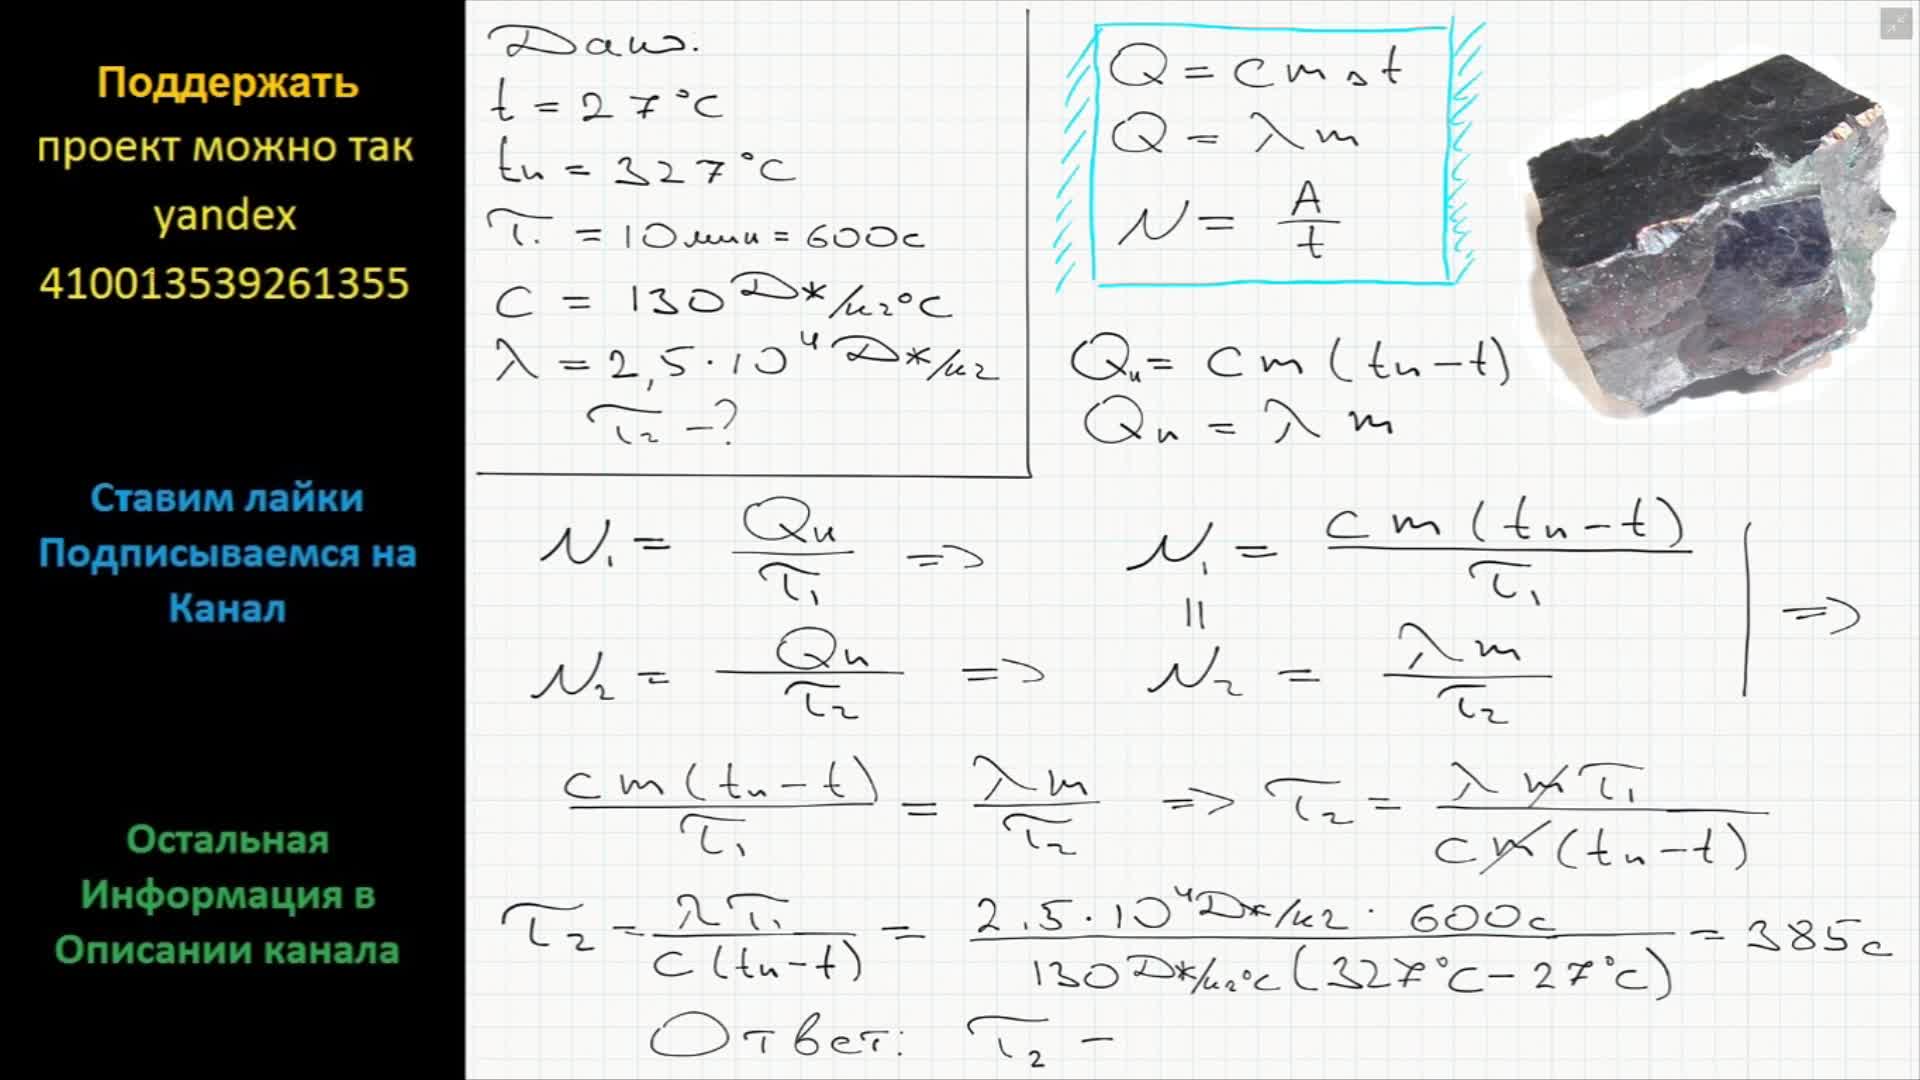 Поддержать
проект можно так
yandex
410013539261355
Ставим лайки
Подписываемся на
Канал
Остальная
Информация в
Описании канала
Дано:
t = 27°C
tп = 327°C
τ₁ = 10 мин = 600с
c = 130 Дж/кг°C
λ = 2,5·10⁴ Дж/кг
τ₂ - ?
Q = cmΔt
Q = λm
N = A/t
Qн = cm(tп-t)
Qп = λm
N₁ = Qн/τ₁ => N₁ = cm(tп-t)/τ₁
=>
N₂ = Qп/τ₂ => N₂ = λm/τ₂
cm(tп-t)/τ₁ = λm/τ₂ => τ₂ = λmτ₁/cm(tп-t)
τ₂ = λτ₁/c(tп-t) = 2,5·10⁴ Дж/кг · 600с/130 Дж/кг°C (327°C-27°C) = 385с
Ответ: τ₂ -